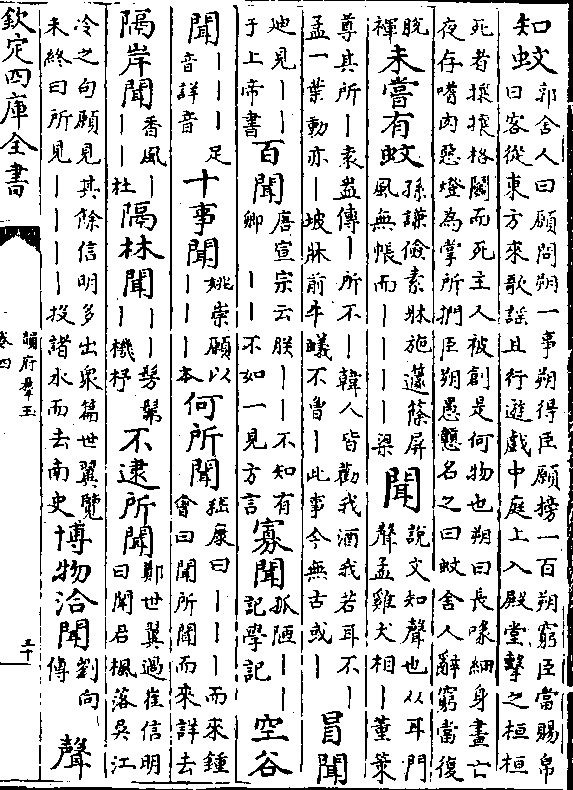 知蚊
郭舍人曰願問朔一事朔得臣願搒一百朔窮臣當賜帛
曰客從東方來歌謡且行遊戲中庭上入殿堂擊之桓桓
死者攘攘格鬭而死主人被創是何物也朔曰長喙細身晝亡
夜存嗜肉惡燈為掌所捫臣朔愚戇名之曰蚊舍人辭窮當復
脱
褌
未嘗有蚊
孫謙儉素牀施蘧蒢屏
風無帳而｜｜｜｜梁
聞
説文知聲也从耳門
聲孟雞犬相｜董策
尊其所｜袁盎傳｜所不｜韓人皆勸我酒我若耳不｜
孟一葉動亦｜坡牀前牛蟻不魯｜此事今無古或｜
冒聞
迪見｜｜
于上帝書
百聞
唐宣宗云朕｜｜不知有
卿｜｜不如一見方言
寡聞
孤陋｜｜
記學記
空谷
聞
｜｜｜足
音詳音
十事聞
姚崇願以
｜｜｜本
何所聞
嵇康曰｜｜｜而來鍾
會曰聞所聞而來詳去
隔岸聞
香風｜
｜｜杜
隔林聞
｜｜｜髣髴
｜｜機杼
不逮所聞
鄭世翼過崔信明
曰聞君楓落吳江
冷之句願見其餘信明多出衆篇世翼覽
未終曰所見｜｜｜｜投諸水而去南史
博物洽聞
劉向
傳
聲
欽定四庫全書
韻府羣玉
卷四
五十